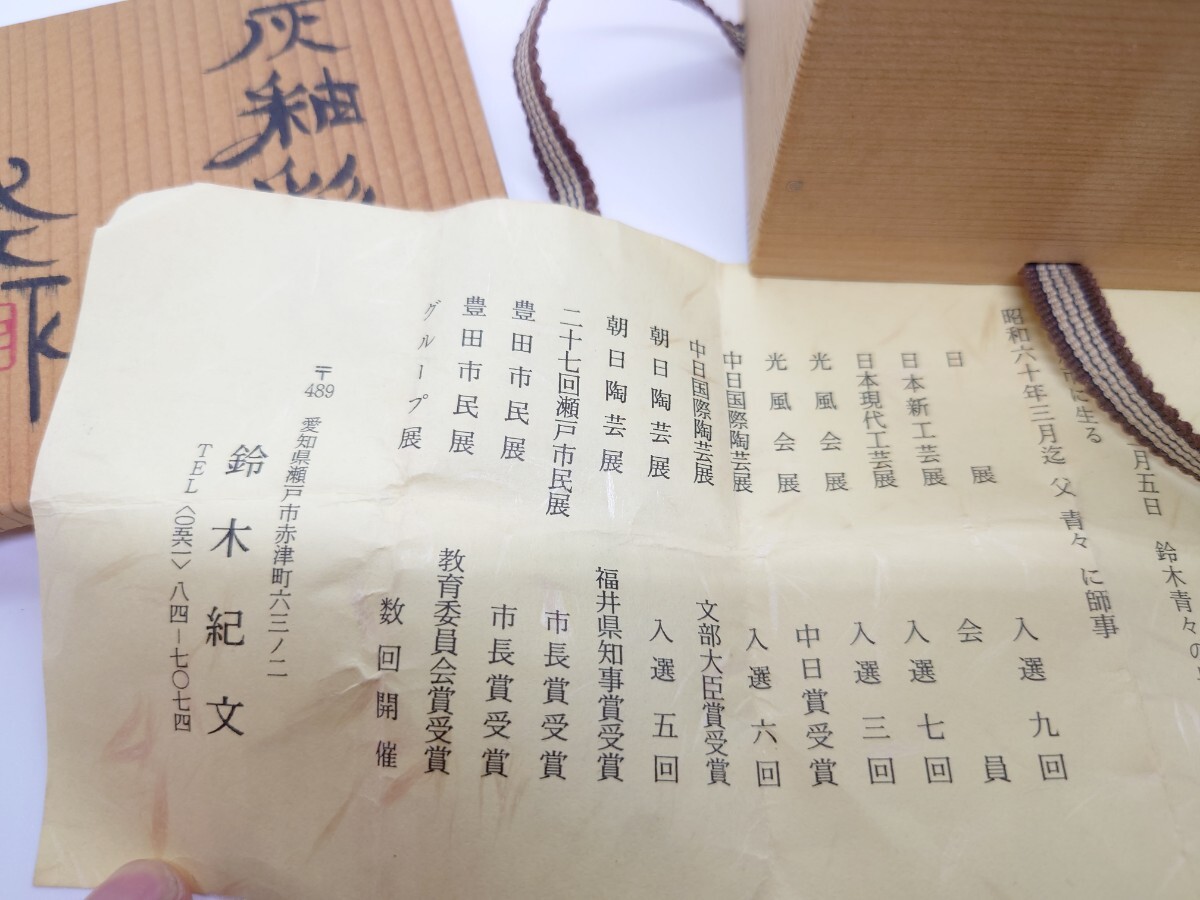 月五日 鈴木青々の
に生る
昭和六十年三月迄 父 青々 に師事
日展 入選 九回
日本新工芸展 会員
日本現代工芸展 入選 七回
光風会展 入選 三回
光風会展 中日賞受賞
中日国際陶芸展 入選 六回
中日国際陶芸展 文部大臣賞受賞
朝日陶芸展 入選 五回
朝日陶芸展 福井県知事賞受賞
二十七回瀬戸市民展 市長賞受賞
豊田市民展 市長賞受賞
豊田市民展 教育委員会賞受賞
グループ展 数回開催
〒489 愛知県瀬戸市赤津町六三ノ二
鈴木紀文
TEL〈〇五六一〉八四－七〇七四
灰釉彩
文作